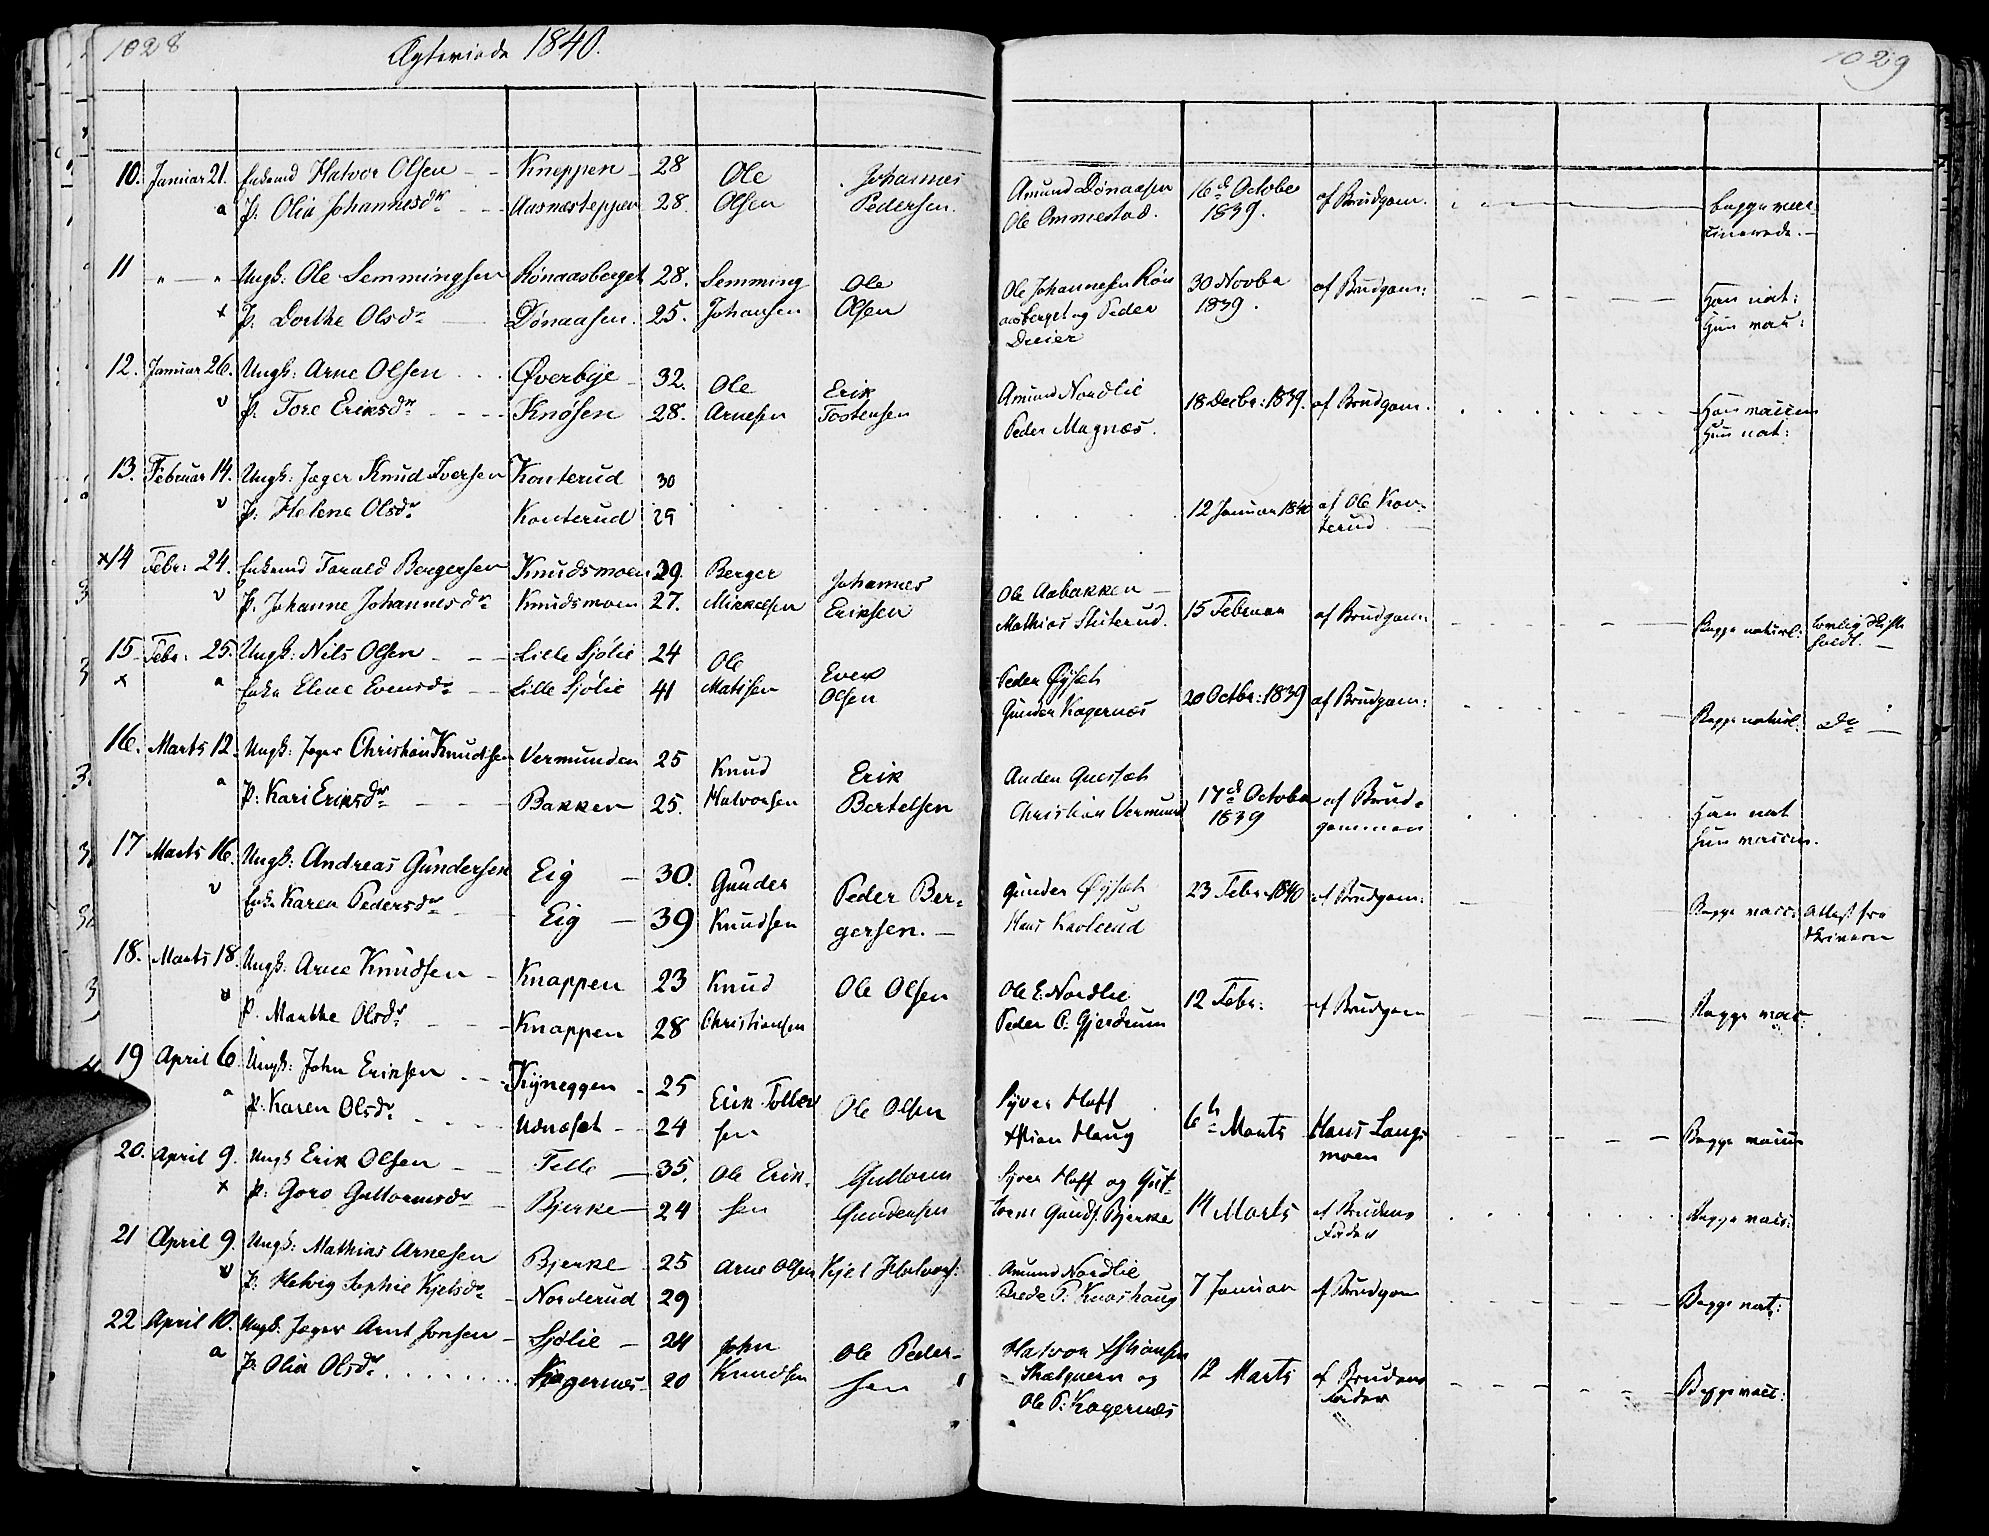 1028
Ægteviede 1840.
1029
10. Januar 21. Enkemd Halvor Olsen Kneppen 28 Ole Johannes Amund Dønaasen 16de October af Brudgom. begge vacc
a P: Olia Johannesdr Aasnæsteppen 28. Olsen Pedersen. Ole Ommestad. 1839. cinerede.
11 " — " Ungk: Ole Semmingsen Rønaasberget 28. Semming Ole Ole Johannesen Røn 30 Novbr af Brudgom: Han nat:
x P: Dorthe Olsdr Dønaasen. 25. Johansen Olsen aasberget og Peder 1839. Hun vacc:
Dreier
12. Januar 26. Ungk: Arne Olsen Øverbye 32. Ole Erik Amund Nordlie 18 Decbr: 1839. af Brudgom. Han vaccin
v P. Tore Eriksdr Knøsen 28. Arnesen Tostensen Peder Magnæs. Hun nat:
13. Februar 14. Ungk: Jæger Knud Iversen Konterud 30
v P: Helene Olsdr Konterud 29 12 Januar 1840 af Ole Kon-
terud
x14 Febr: 24. Enkemd Tarald Bergersen Knudsmoen 39. Berger Johannes Ole Aabakken
v P. Johanne Johannesdr Knudsmoen 27. Mikkelsen Eriksen Mathias Stuterud. 15 Februar af Brudgom: Begge naturl: lovlig Skifte
holdt.
15 Febr: 25. Ungk: Nils Olsen Lille Sjølie 24 Ole Even Peder Øyset
x a Enke Elene Evensdr Lille Sjølie 41 Matisen Olsen Gunder Kagernæs 20 Octbr: 1839 af Brudgom: Begge naturl: Do
16. Marts 12. Ungk: Jæger Christian Knudsen Vermunden 25 Knud Erik
a P: Kari Eriksdr Bakken 25. Halvorsen Bertelsen Christian Vermund 17de October af Brud- Han nat
1839 gommen Hun vaccin.
17 Marts 16. Ungk: Andreas Gundersen Eig 30. Gunder Peder Ber- Gunder Øyset 23 Febr. 1840 af Brudgom: Begge vacc: Attest fra
v Enke Karen Pedersdr Eig 39 Knudsen gersen. Hans Skriveren
18. Marts 18. Ungk: Arne Knudsen Knappen 23 Knud Ole Olsen Ole E. Nordlie 12 Febr: af Brudgom Begge vac:
v P. Marthe Olsdr Knappen 28 Christiansen Peder O: Gjerdrum
19 April 6. Ungk: John Eriksen Kyneggen 25 Erik Toller Ole Olsen Syver Hoff 6te Marts Hans Lang- Begge vaccin
a P: Karen Olsdr Udnæset 24 sen Haug moen
20. April 9. Ungk Erik Olsen Telle 35. Ole Erik- Guttorm Syver Hoff og Gut-
x P: Goro Guttormsdr Bjerke 24 sen Gundersen torm Gunds. Bjerke 14 Marts af Brudens Begge vacc:
Fader
21 April 9. Ungk: Mathias Arnesen Bjerke 25 Arne Olsen Kjel Halvors: Amund Nordlie
v P: Helvig Sophie Kjelsdr Norderud 29 Brede P: Knashaug 7 Januar af Brudgom Begge nat:
22 April 10. Ungk. Jæger Arnt Jonsen Sjølie 24 John Ole Peder-
a P: Olia Olsdr Kagernæs 20 Knudsen sen og 12 Marts af Brudens Begge vacc:
Ole P: Kagernæs Fader